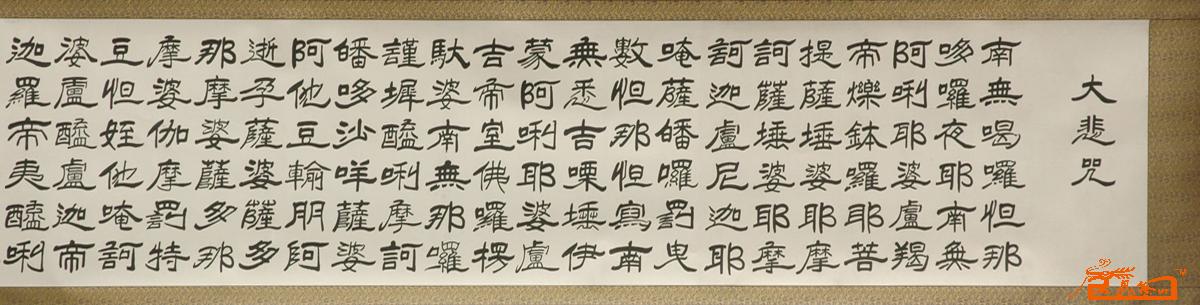 大悲咒
南無喝囉怛那
哆囉夜耶南無
阿唎耶婆盧羯
帝爍鉢囉耶菩
提薩埵婆耶摩
訶薩埵婆耶摩
訶迦盧尼迦耶
唵薩皤囉罰曳
數怛那怛寫南
無悉吉㗚埵伊
蒙阿唎耶婆盧
吉帝室佛囉楞
馱婆南無那囉
謹墀醯唎摩訶
皤哆沙咩薩婆
阿他豆輸朋阿
逝孕薩婆薩多
那摩婆薩多那
摩婆伽摩罰特
豆怛姪他唵訶
婆盧醯盧迦帝
迦羅帝夷醯唎